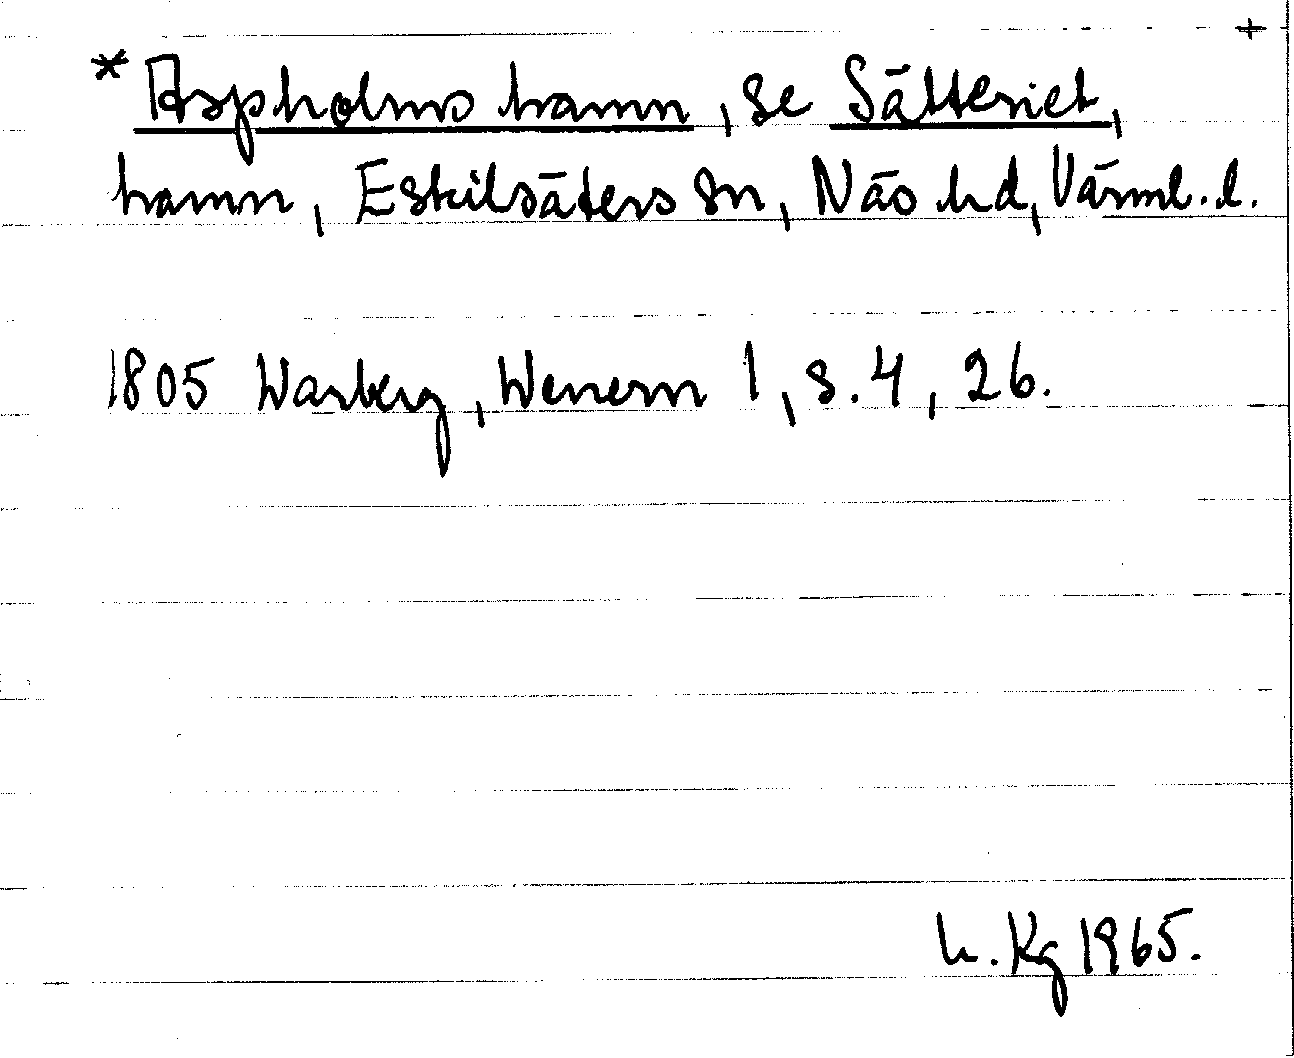 +
* Aspholms hamn, se Sätteriet,
hamn, Eskilsäters sn, Näs hd, Värml. l.
1805 Warberg, Wenern 1, s. 4, 26.
h. Kg 1965.